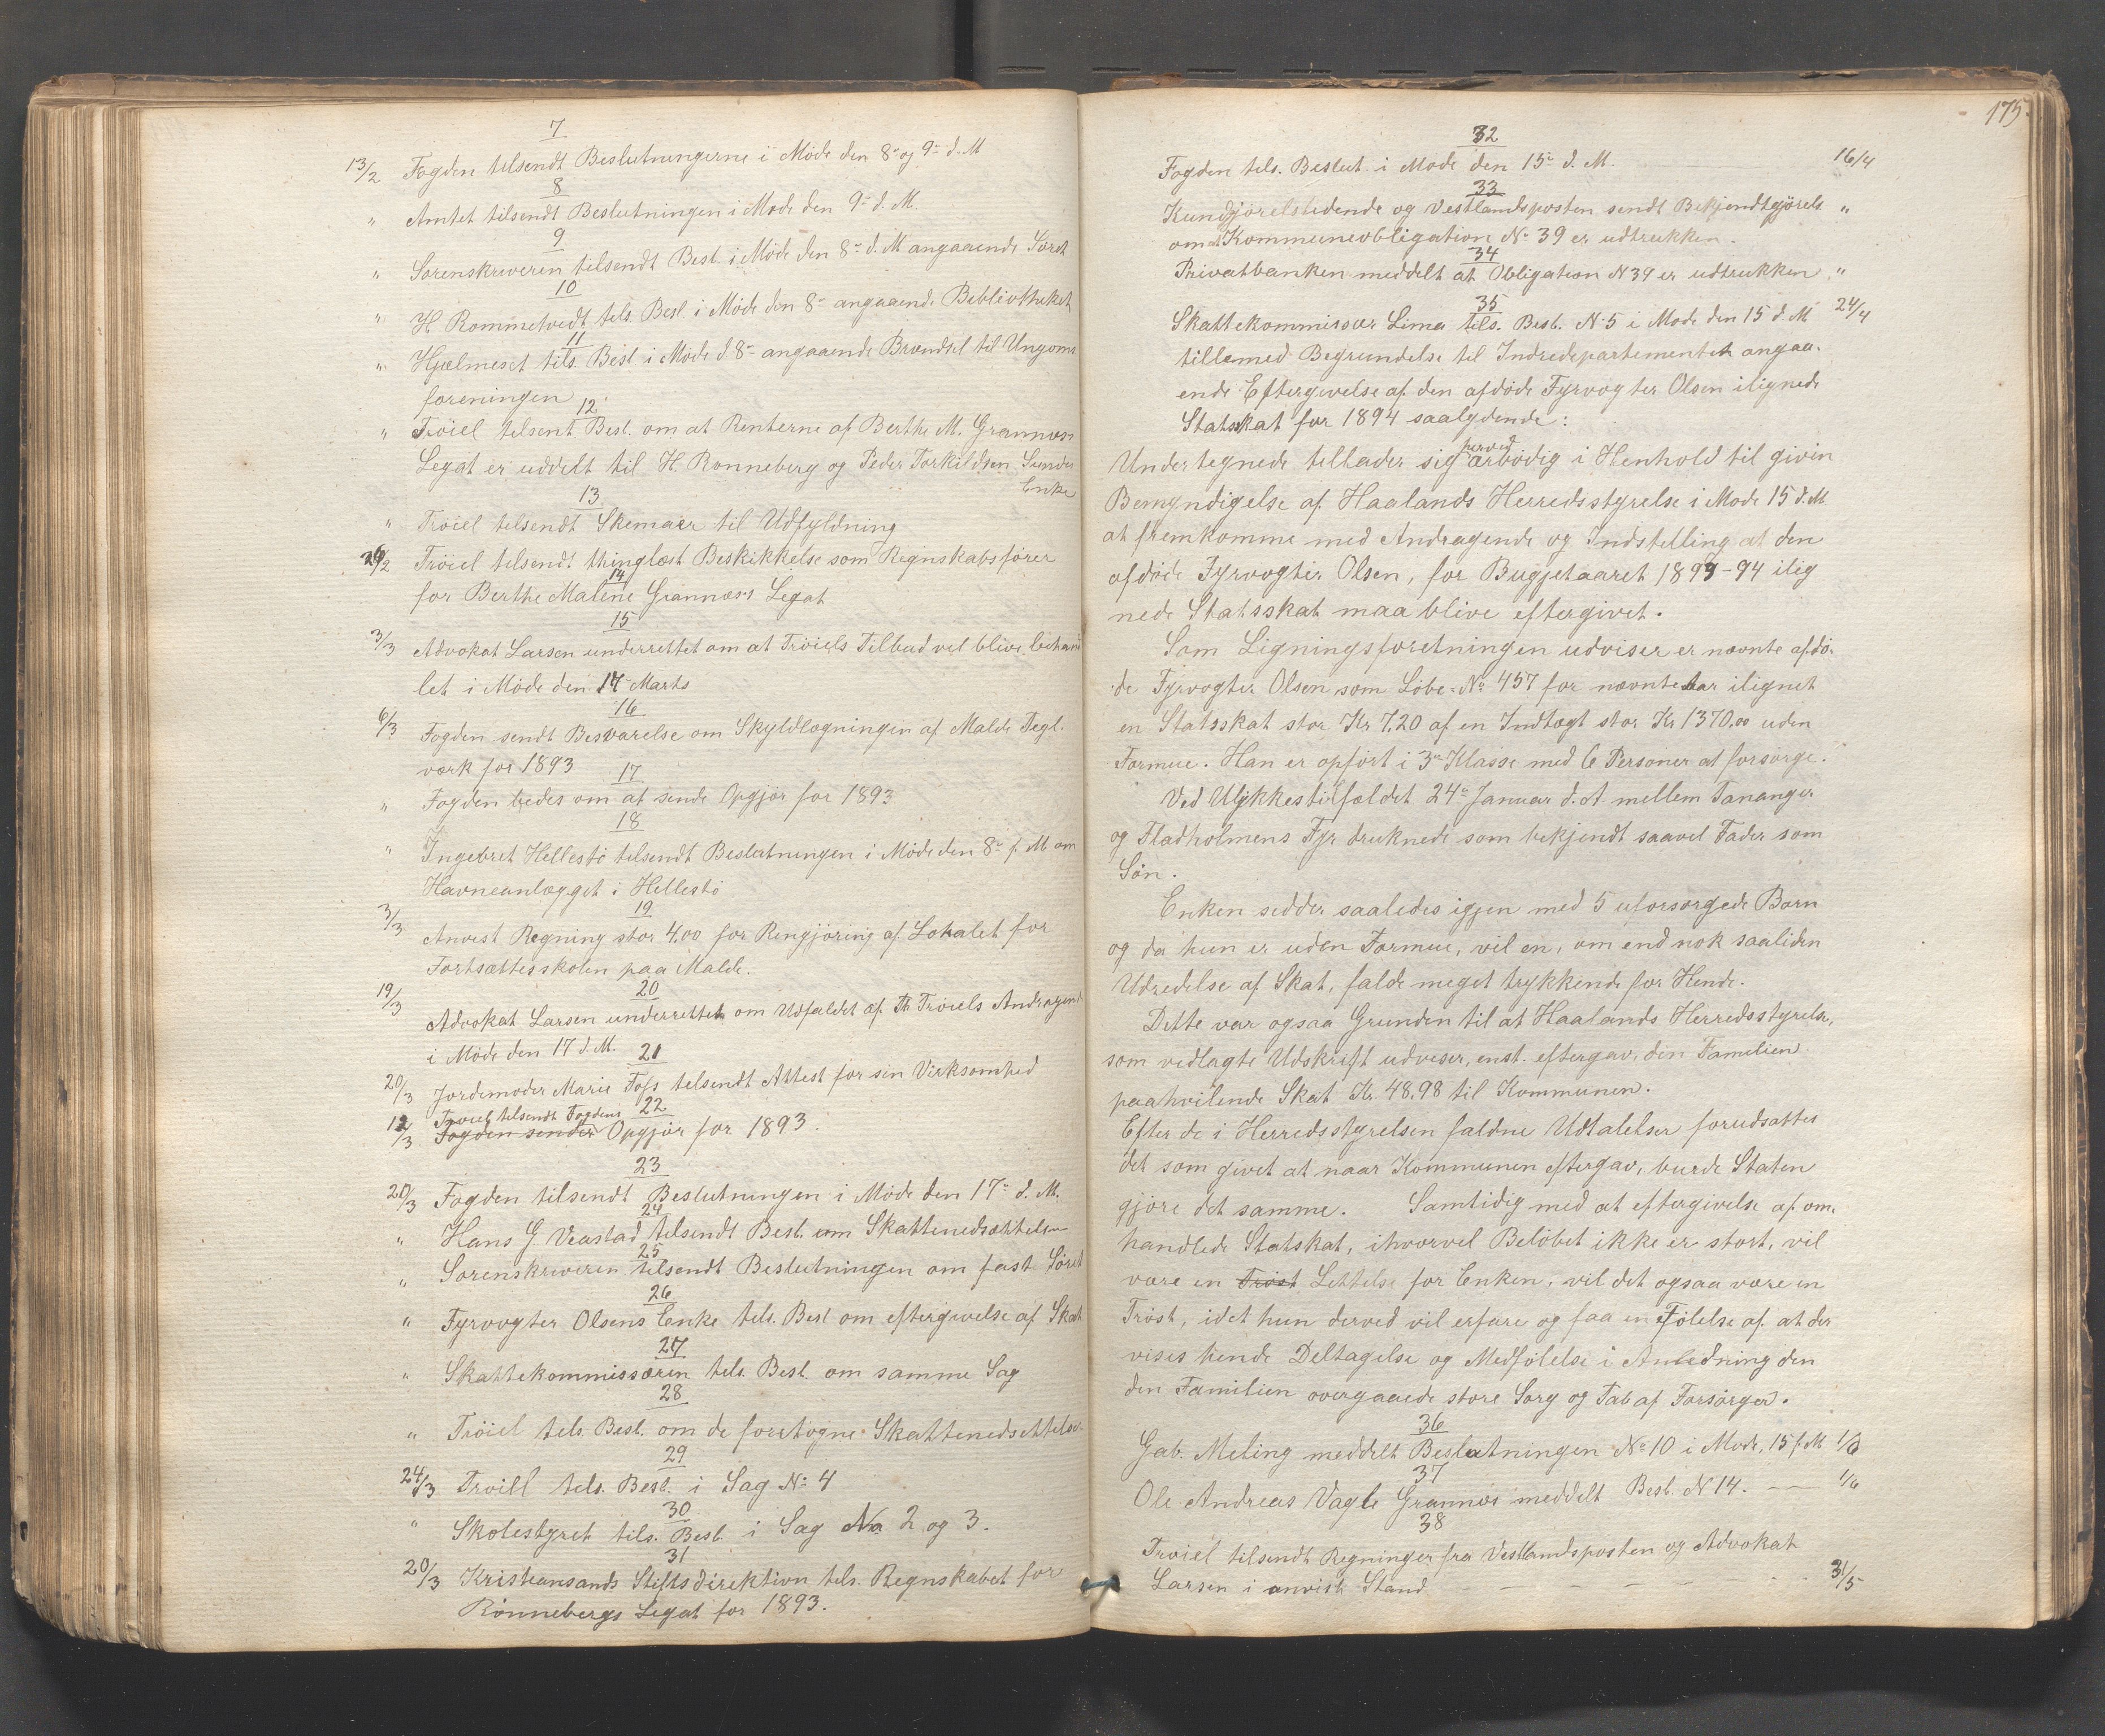 7
13/2 Fogden tilsendt Beslutningerne i Møde den 8de og 9de d. M
8
" Amtet tilsendt Beslutningen i Møde den 9de d. M.
9
" Sorenskriveren tilsendt Besl. i Møde den 8de d. M angaaende
10
" H Rommetvedt tils. Besl. i Møde den 8de angaaende Bibliotheket
11
" Hjelmeset tils. Besl i Møde d 8de angaaende Brændsel til Ungoms
foreningen
12
" Tröiel tilsent Besl. om at Renterne af Berthe M. Grannæs
Legat er uddelt til H. Ronneberg og Peder Torkildsen Sunde
Enke
13
" Tröiel tilsendt Skemaer til Udfyldning
26/2 Tröiel tilsendt thinglæst Beskikkelse som Regnskabsfører
14
for Berthe Maline Grannæs's Legat
15
3/3 Advokat Larsen underrettet om at Tröiels Tilbud vil blive behand
let i Møde den 17 Marts
16
6/3 Fogden sendt Besvarelse om Skyldlægningen af Malde Tegl.
værk for 1893
17
" Fogden bedes om at sende Opgjör for 1893
18
" Ingebret Hellestö tilsendt Beslutningen i Møde den 8de f. M. om
Havneanlægget i Hellestö
19
3/3 Anvist Regning stor 4,00 for Rengjöring af Lokalet for
Fortsættesskolen paa Malde.
20
19/3 Advokat Larsen underrettet om Udfaldet af Th Tröiels Andragende
i Møde den 17 d. M.
21
20/3 Jordemoder Marie Foss tilsendt Attest for sin Virksomhed
22
12/3 Tröiel tilsendt Fogdens
Fogden sender Opgjör for 1893.
23
20/3 Fogden tilsendt Beslutningen i Møde den 17de d. M.
24
" Hans G Veastad tilsendt Besl. om Skattenedsættelsen
25
" Sorenskriveren tilsendt Beslutningen om fast
26
" Fyrvogter Olsens Enke tils. Besl om eftergivelse af Skat
27
" Skattekommissæren tils. Besl. om samme Sag
28
" Tröiel tils. Besl. om de foretogne Skattenedsættelser
29
24/3 Tröiel tils. Besl. i Sag No 4
30
" Skolestyret tils. Besl. i Sag No 2 og 3.
31
20/3 Kristiansands Stiftsdirektion tils. Regnskabet for
Rönnebergs Legat for 1893.
175
32
Fogden tils. Beslut i Møde den 15de d. M. 16/4
33
Kundgjörelstidende og Vestlandsposten sendt Bekjendtgjörels "
om at Kommuneobligation No 39 er udtrukken.
34
Privatbanken meddelt at Obligation N 39 er udtrukken "
35
Skattekommissær Lima tils. Besl. N 5 i Møde den 15 d. M 24/4
tillemed Begrundelse til Indredepartementet angaa.
ende Eftergivelse af den afdöde Fyrvogter Olsen ilignede
Statsskat for 1894 saalydende:
herved
Undertegnede tillader sig ærbödig i Henhold til given
Bemyndigelse af Haalands Herredsstyrelse i Møde 15 d. M
at fremkomme med Andragende og Indstilling at den
afdöde Fyrvogter Olsen, for Bugjetaaret 1893-94 ilig
nede Statsskat maa blive eftergivet.
Som Ligningsforretningen udviser er nævnte afdö-
de Fyrvogter Olsen som Löbe-No 457 for nævnte Aar ilignet
en Statsskat stor Kr 7,20 af en Indtægt stor Kr 1370,00 uden
Formue. Han er opfört i 3de Klasse med 6 Personer at forsörge.
Ved Ulykkestilfældet 24de Januar d. A. mellem Tananger
og Fladholmens Fyr druknede som bekjendt saavel Fader som
Sön.
Enken sidder saaledes igjen med 5 uforsörgede Børn
og da hun er uden Formue, vil en, om end nok saaliden
Udredelse af Skat, falde meget trykkende for Hende.
Dette var ogsaa Grunden til at Haalands Herredsstyrelse,
som vedlagte Udskrift udviser, enst. eftergav, den Familien
paahvilende Skat Kr. 48,98 til Kommunen.
Efter de i Herredsstyrelsen faldne Udtalelser forudsattes
det som givet at naar Kommunen eftergav, burde Staten
gjöre det samme. Samtidig med at eftergivelse af om.
handlede Statskat, ihvorvel Belöbet ikke er stort, vil
være en Tröst Lettelse for Enken, vil det ogsaa være en
Tröst, idet hun derved vil erfare og faa en Fölelse af at der
vises hende Deltagelse og Medfölelse i Anledning den
den Familien overgaaede store Sorg og Tab af Forsörger.
36
Gab. Meling meddelt Beslutningen No 10 i Møde, 15 f. M 1/6
37
Ole Andreas Vagle Grannæs meddelt Besl. N 14. — — 1/6
38
Tröiel tilsendt Regninger fra Vestlandsposten og Advokat
Larsen i anvist Stand — — — — 31/5